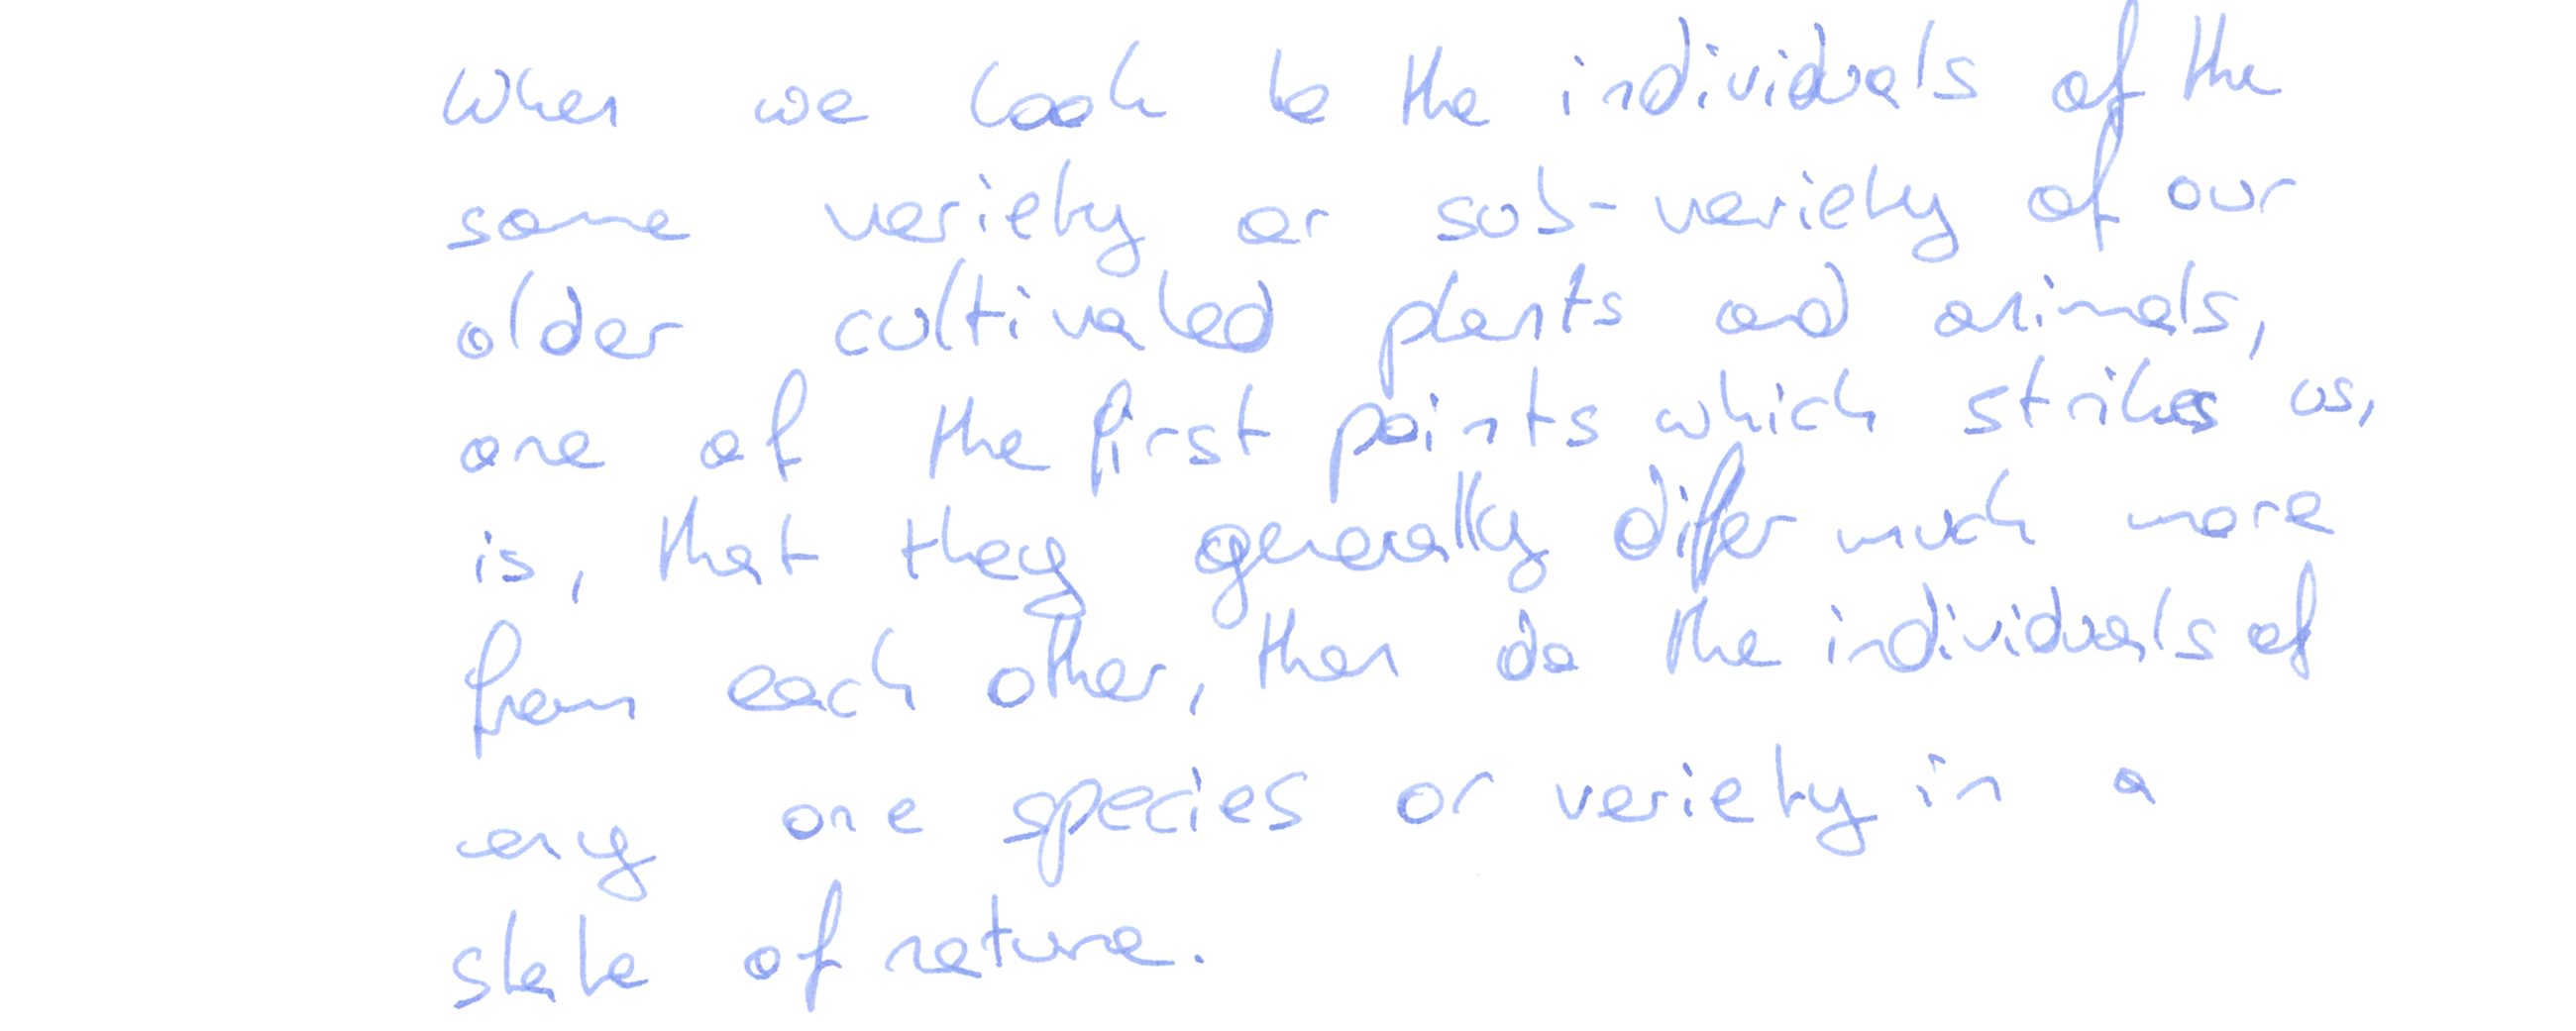 When we look to the individuals of the
same variety or sub-variety of our
older cultivated plants and animals,
one of the first points which strikes us,
is, that they generally differ much more
from each other, than do the individuals of
any one species or variety in a
state of nature.